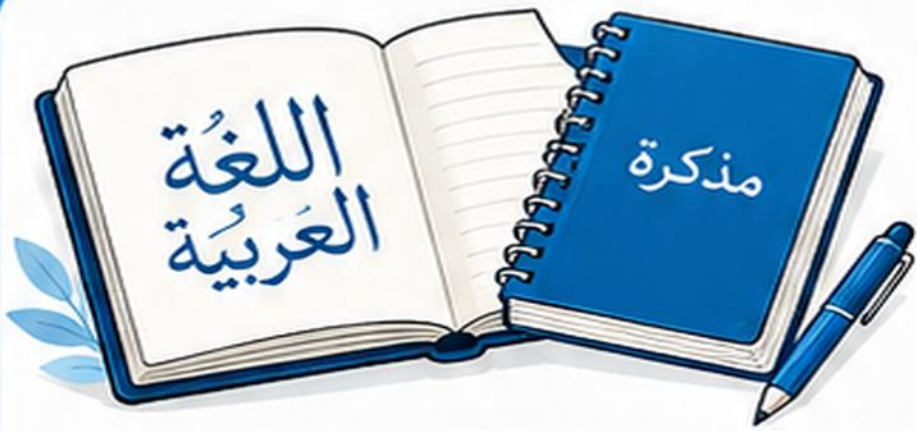 اللغُة
العَربيُة
مذكرة